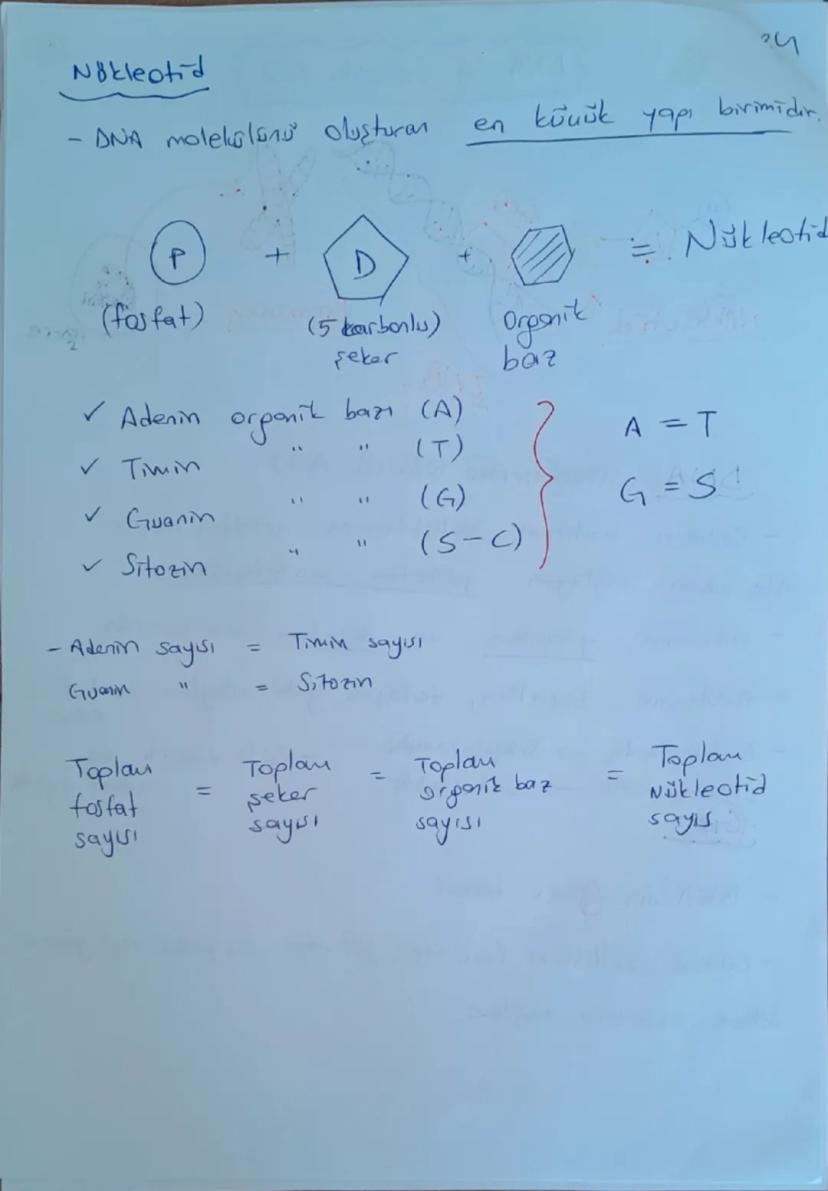 Nükleotid
- DNA molekülünü oluşturan en küçük yapı birimidir.
P + D + = Nükleotid
(fosfat) (5 karbonlu) şeker Organik baz
✓ Adenin organik bazı (A)
✓ Timin " " (T)
✓ Guanin " " (G)
✓ Sitozin " " (S-C)
A = T
G = S
- Adenin sayısı = Timin sayısı
Guanin " = Sitozin
Toplam fosfat sayısı = Toplam şeker sayısı = Toplam organik baz sayısı = Toplam Nükleotid sayıs